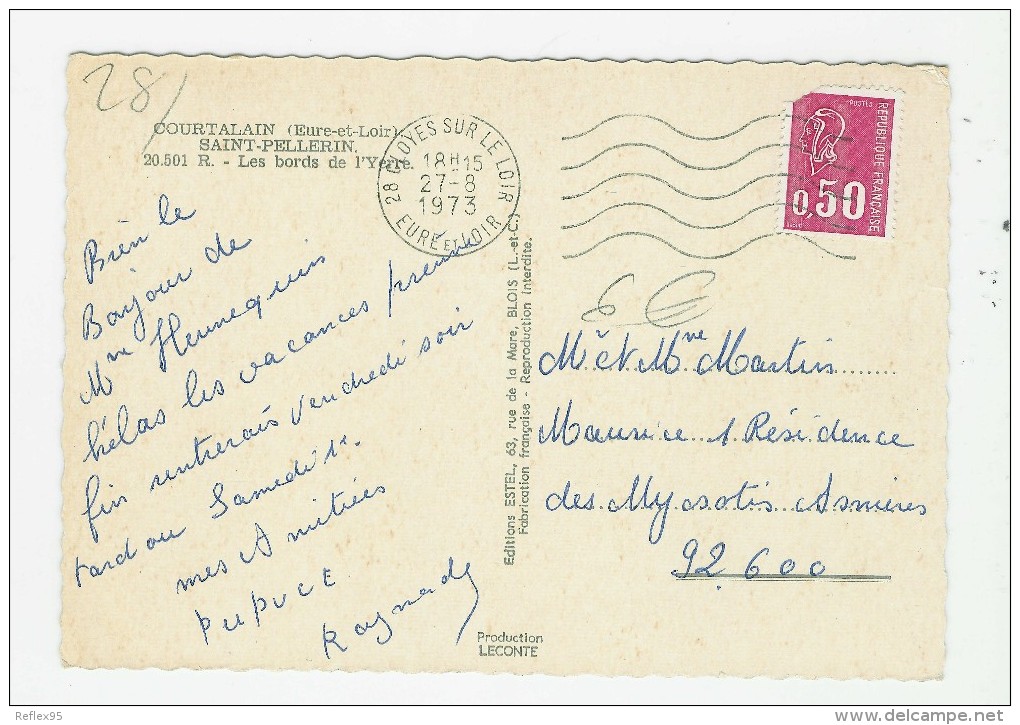 28/
COURTALAIN (Eure-et-Loir)
SAINT-PELLERIN.
20.501 R. - Les bords de l'Yerre.
28 CLOYES SUR LE LOIR
18H15
27-8
1973
EURE ET LOIR
POSTES
REPUBLIQUE FRANÇAISE
0,50
Bien le
Bonjour de
Mme Hennequin
hélas les vacances prenne
fin rentrerais Vendredi soir
tard ou Samedi 1r.
mes Amitiées
PUPUCE
Raymonde
Editions ESTEL, 63, rue de la Mare, BLOIS (L.-et-C.)
Fabrication française - Reproduction Interdite.
6 €
Mr et Mme Martin
Maurice 1 Résidence
des Myosotis Asnières
92600
Production
LECONTE
Reflex95
www.delcampe.net